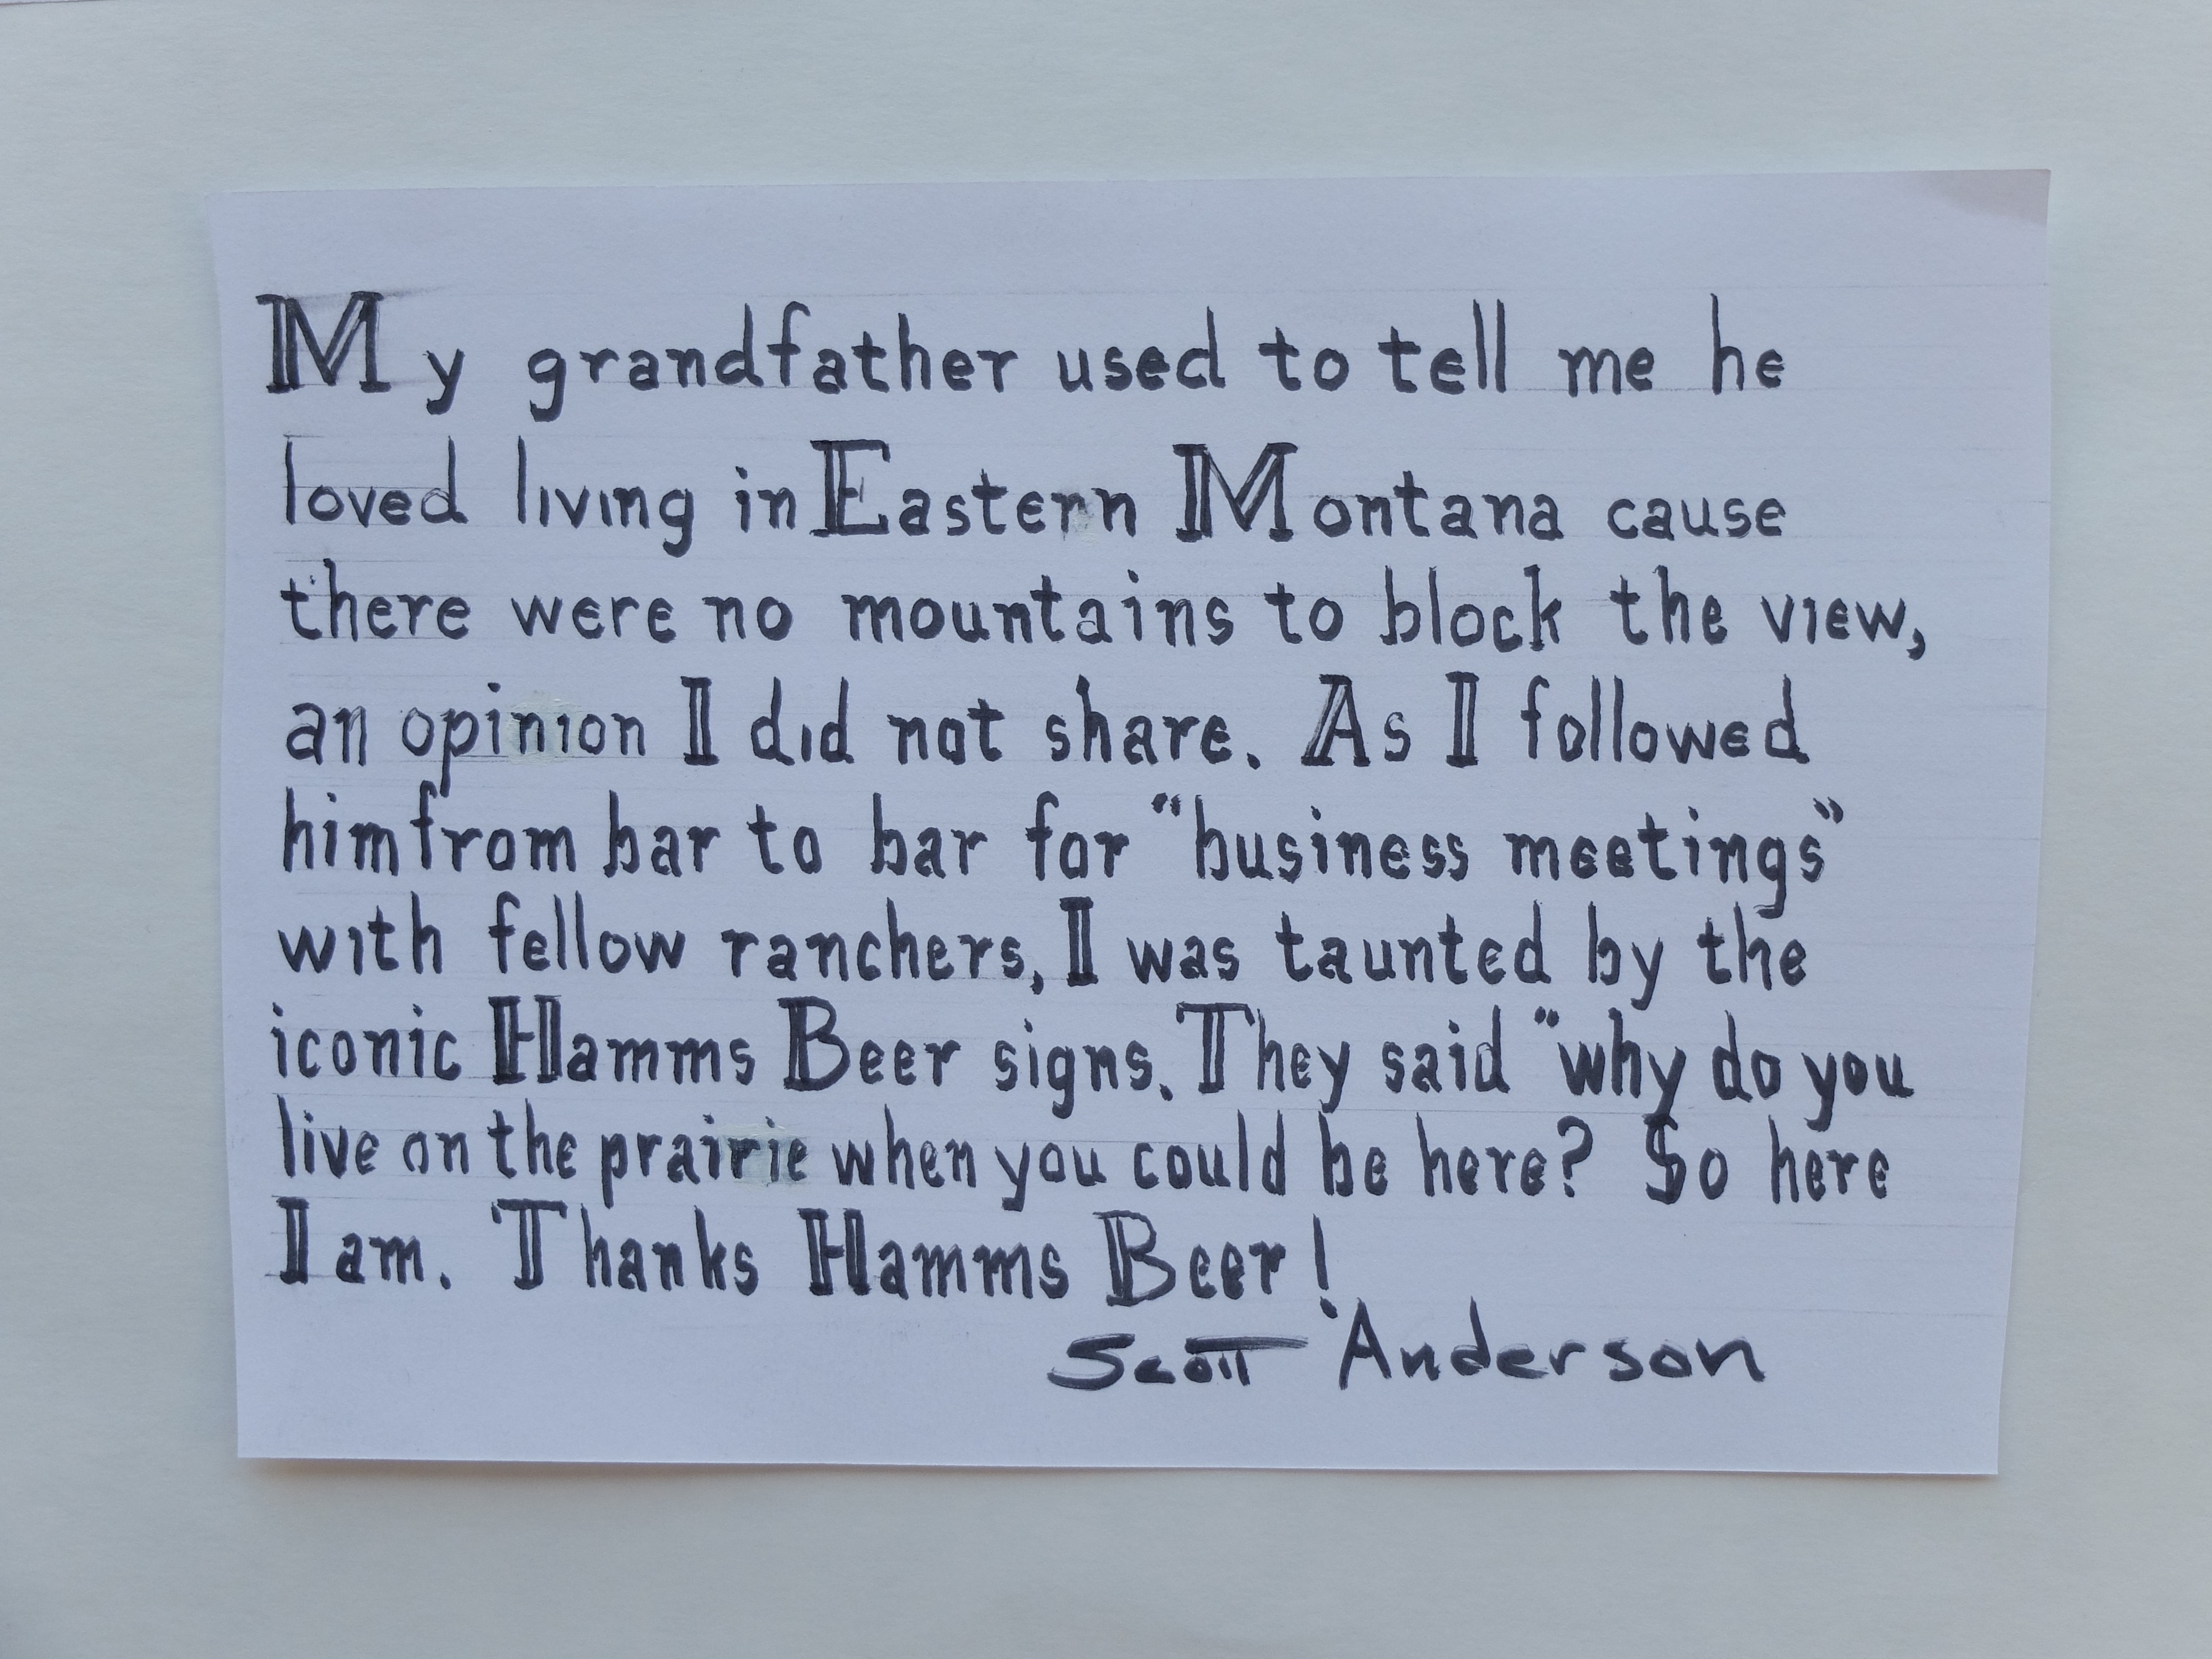 My grandfather used to tell me he
loved living in Eastern Montana cause
there were no mountains to block the view,
an opinion I did not share. As I followed
him from bar to bar for "business meetings"
with fellow ranchers, I was taunted by the
iconic Hamms Beer signs. They said "why do you
live on the prairie when you could be here? So here
I am. Thanks Hamms Beer!
Scott Anderson